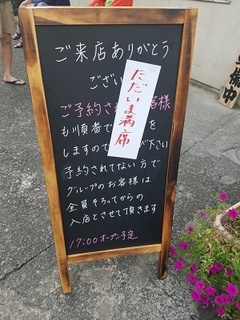 ご来店ありがとう
ござい
ただいま満席
ご予約され 客様
も順番で を
しますので 下さい
予約されてない方で
グループのお客様は
全員そろってからの
入店とさせて頂きます
17:00オープン予定